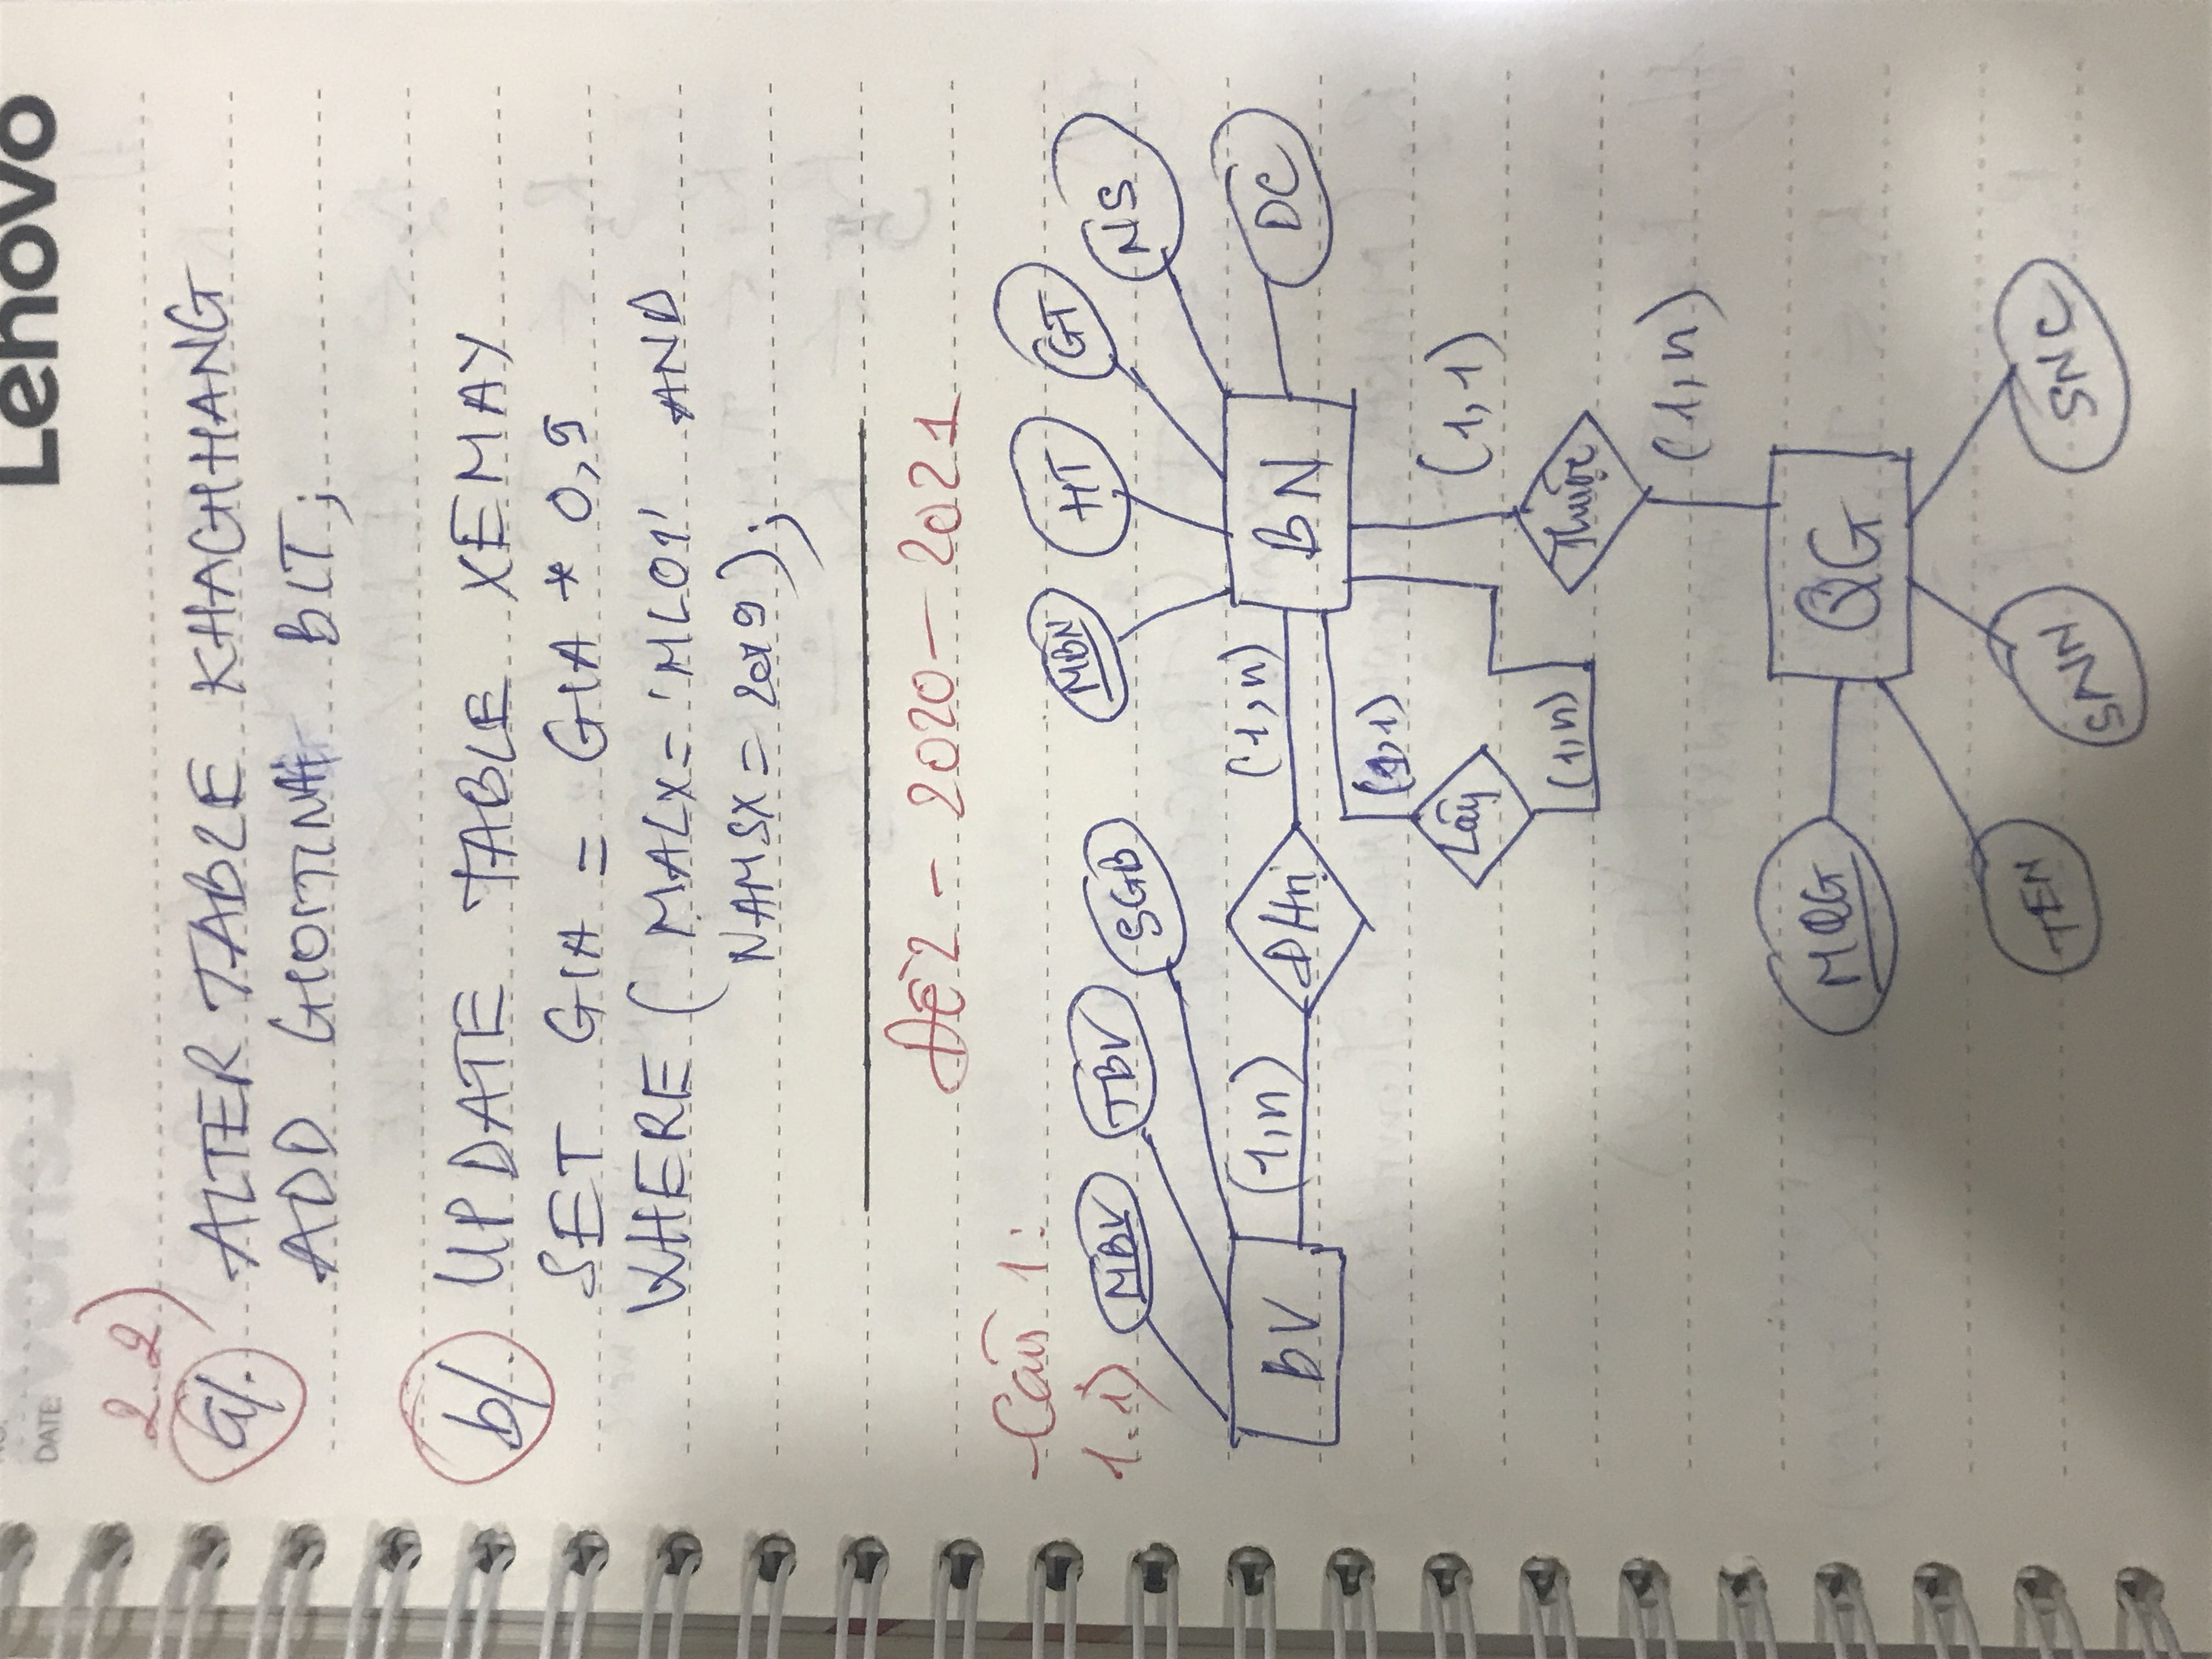 NO.
DATE:
Lenovo
2.2)
a/. ALTER TABLE KHACHHANG
ADD GIOITINH BIT;
b/. UPDATE TABLE XEMAY
SET GIA = GIA * 0,9
WHERE ( MALX = 'ML01' AND
NAMSX = 2019 );
ĐỀ 2 - 2020 - 2021
Câu 1:
1.1)
MBV TBV SGB MBN HT GT NS
BV (1,n) ĐHtrị (1,n) BN DC
(1,1)
Lây (1,1)
(1,n) Thuộc
(1,n)
MQG QG
TEN SNN SNC